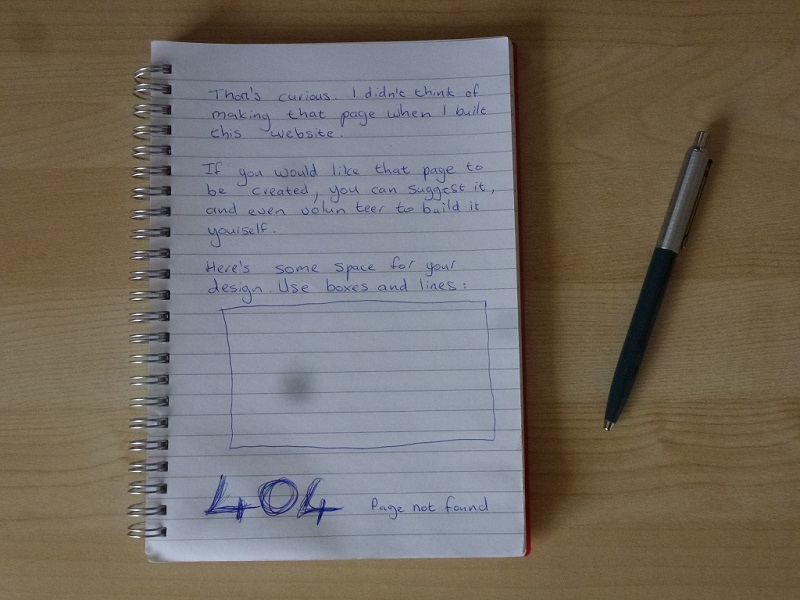 That's curious. I didn't think of
making that page when I built
this website.
If you would like that page to
be created, you can suggest it,
and even volunteer to build it
yourself.
Here's some space for your
design. Use boxes and lines:
404 Page not found